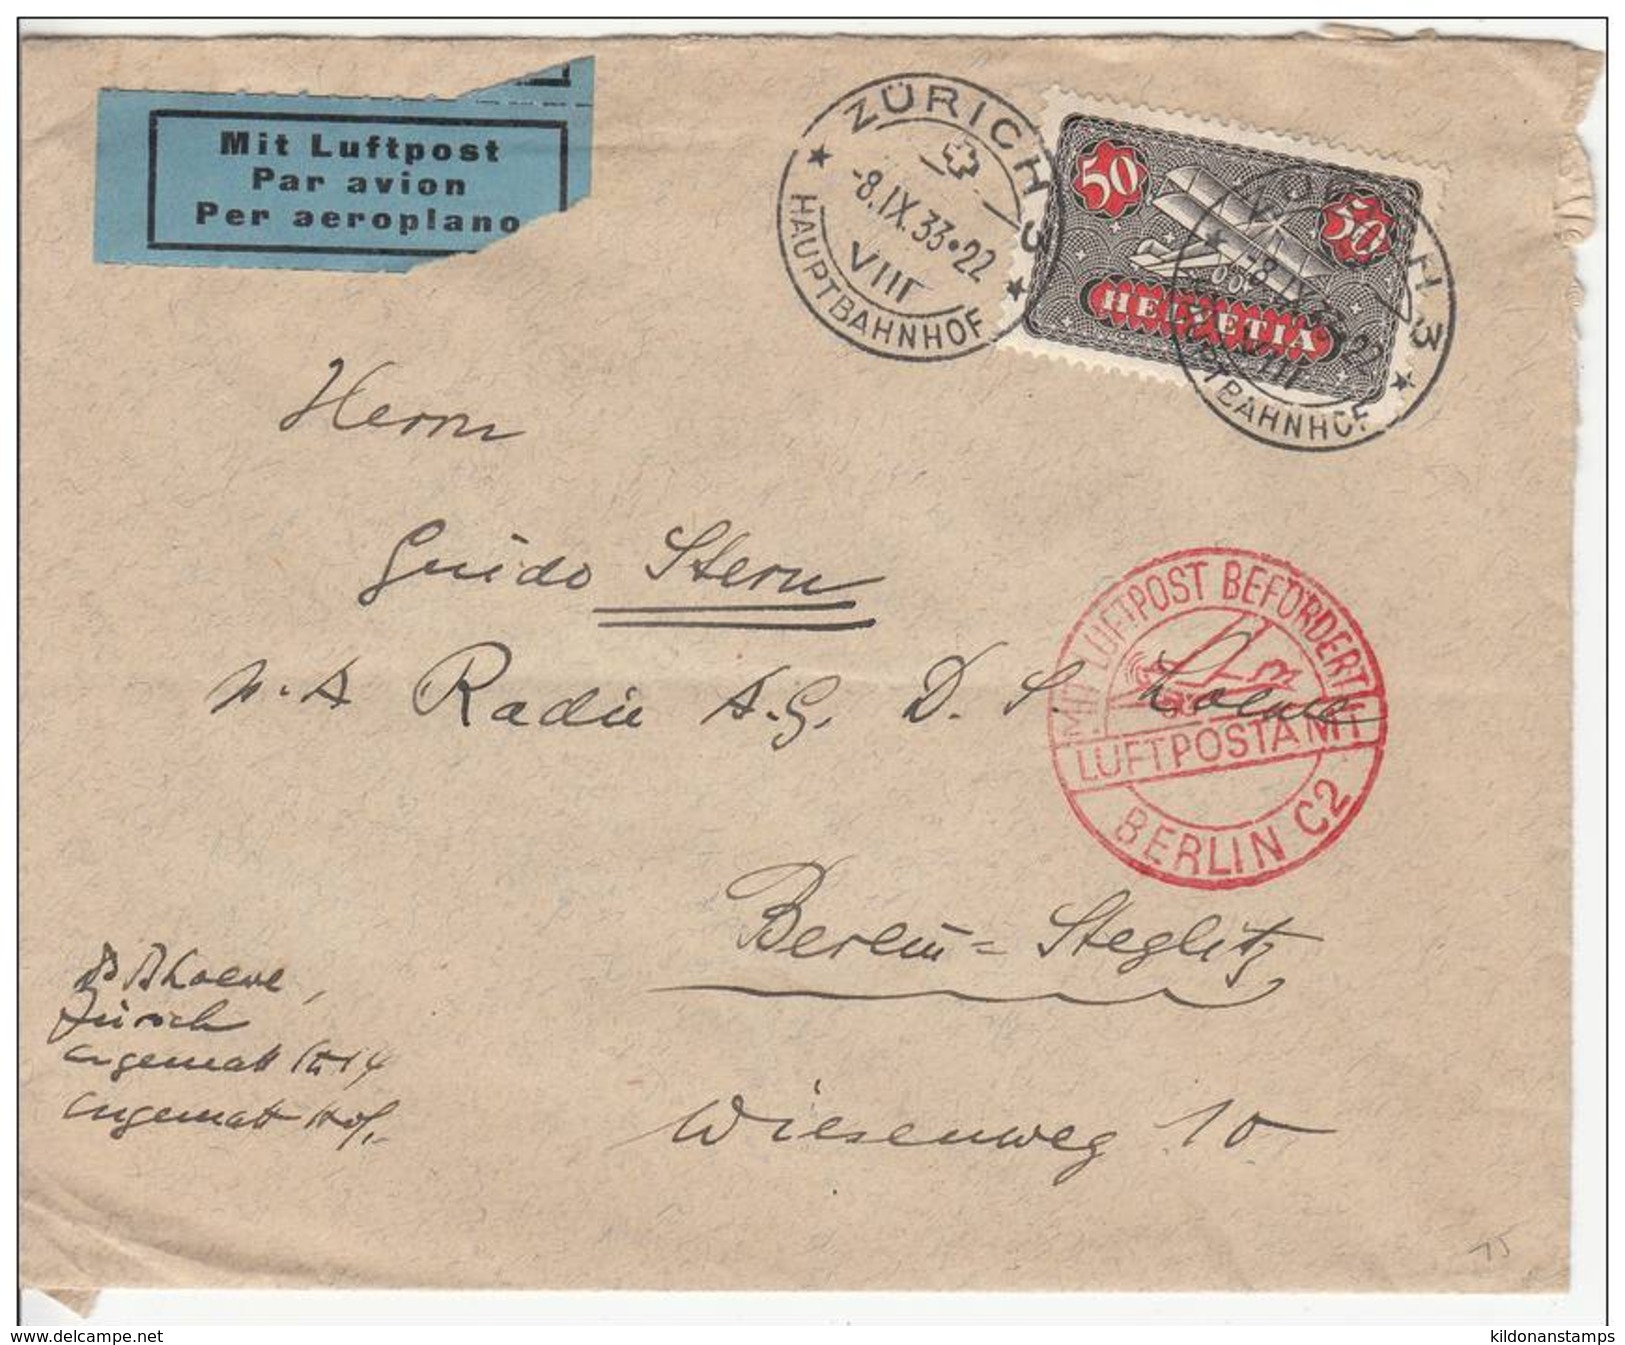 Mit Luftpost
Par avion
Per aeroplano
ZÜRICH 3
-8.IX.33•22
VIII
HAUPTBAHNHOF
50 50
HELVETIA
H 3
-8
22
VIII
TBAHNHOF
Herrn
Guido Stern
A.G. D. S. Loewe
MIT LUFTPOST BEFÖRDERT
LUFTPOSTAMT
BERLIN C2
Berlin=Steglitz
Wiesenweg 10
Loewe,
Zürich
15
www.delcampe.net
kildonanstamps